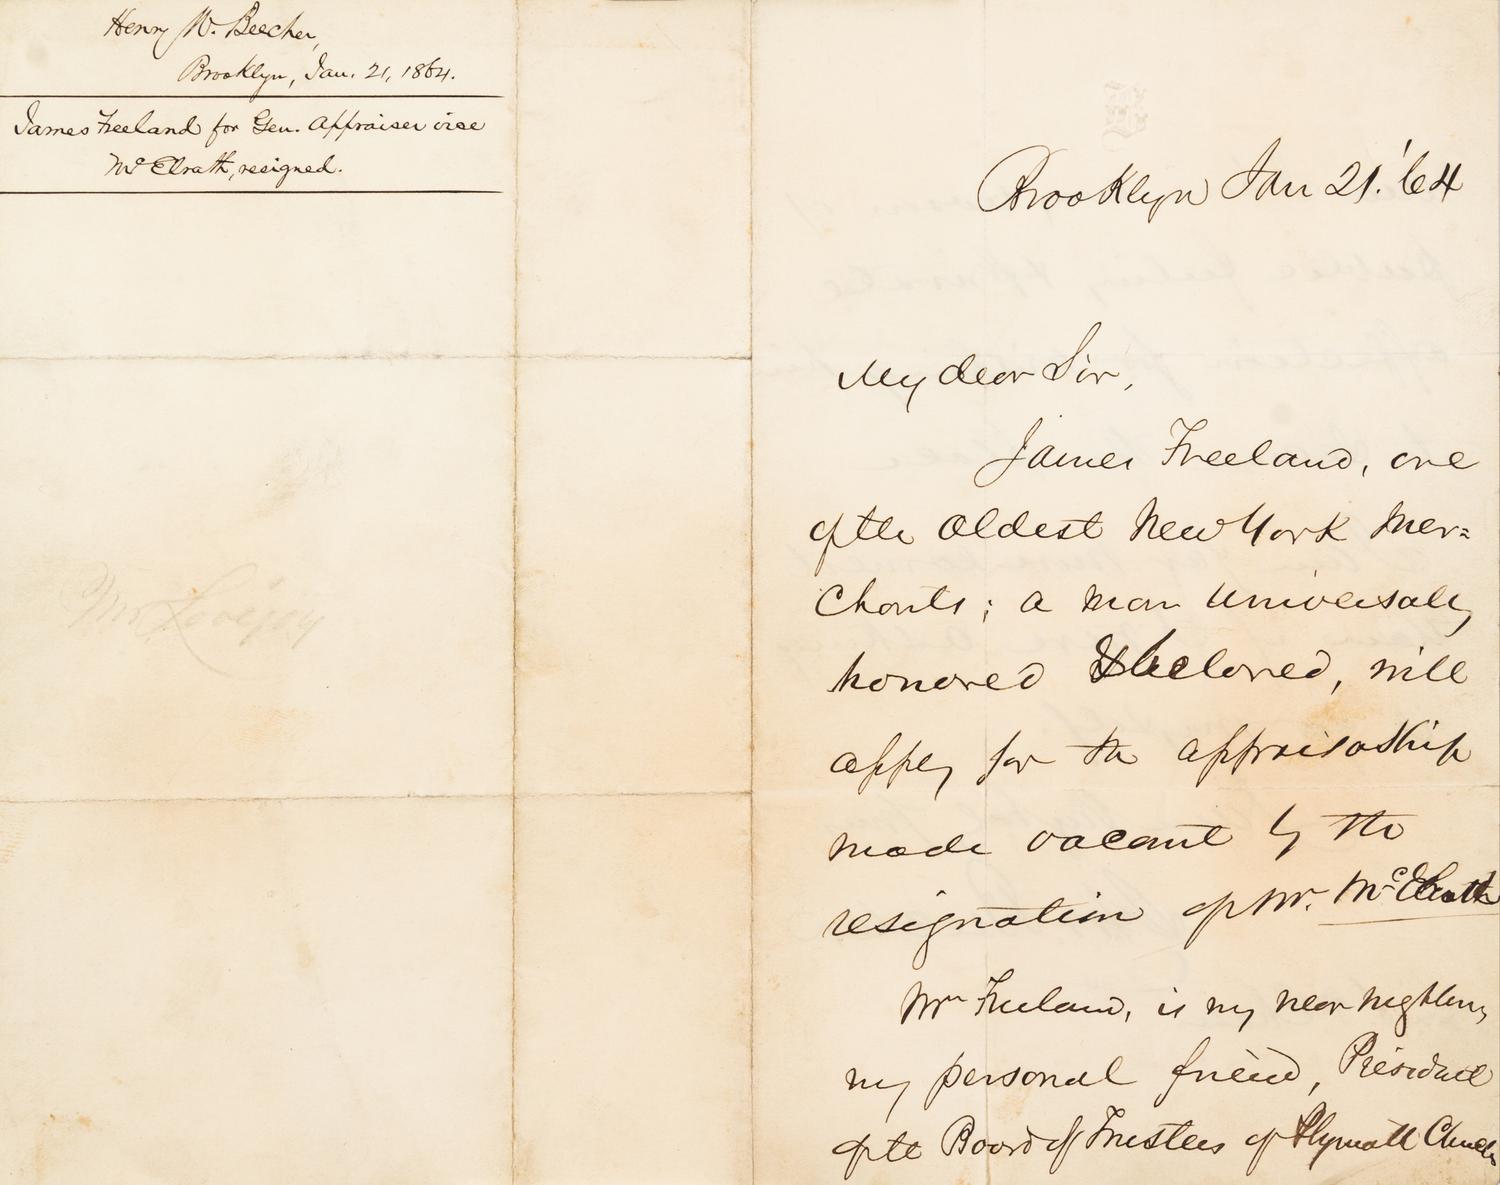 Henry W. Beecher,
Brooklyn, Jan. 21, 1864.
James Freeland for Gen. Appraiser vice
McElrath, resigned.
Brooklyn Jan 21. '64
My dear Sir,
James Freeland, one
of the oldest New York Mer=
chants; a man universally
honored & beloved, will
apply for the appraisership
made vacant by the
resignation of Mr. McElrath
Mr Freeland, is my near neighbor,
my personal friend, President
of the Board of Trustees of Plymouth Church